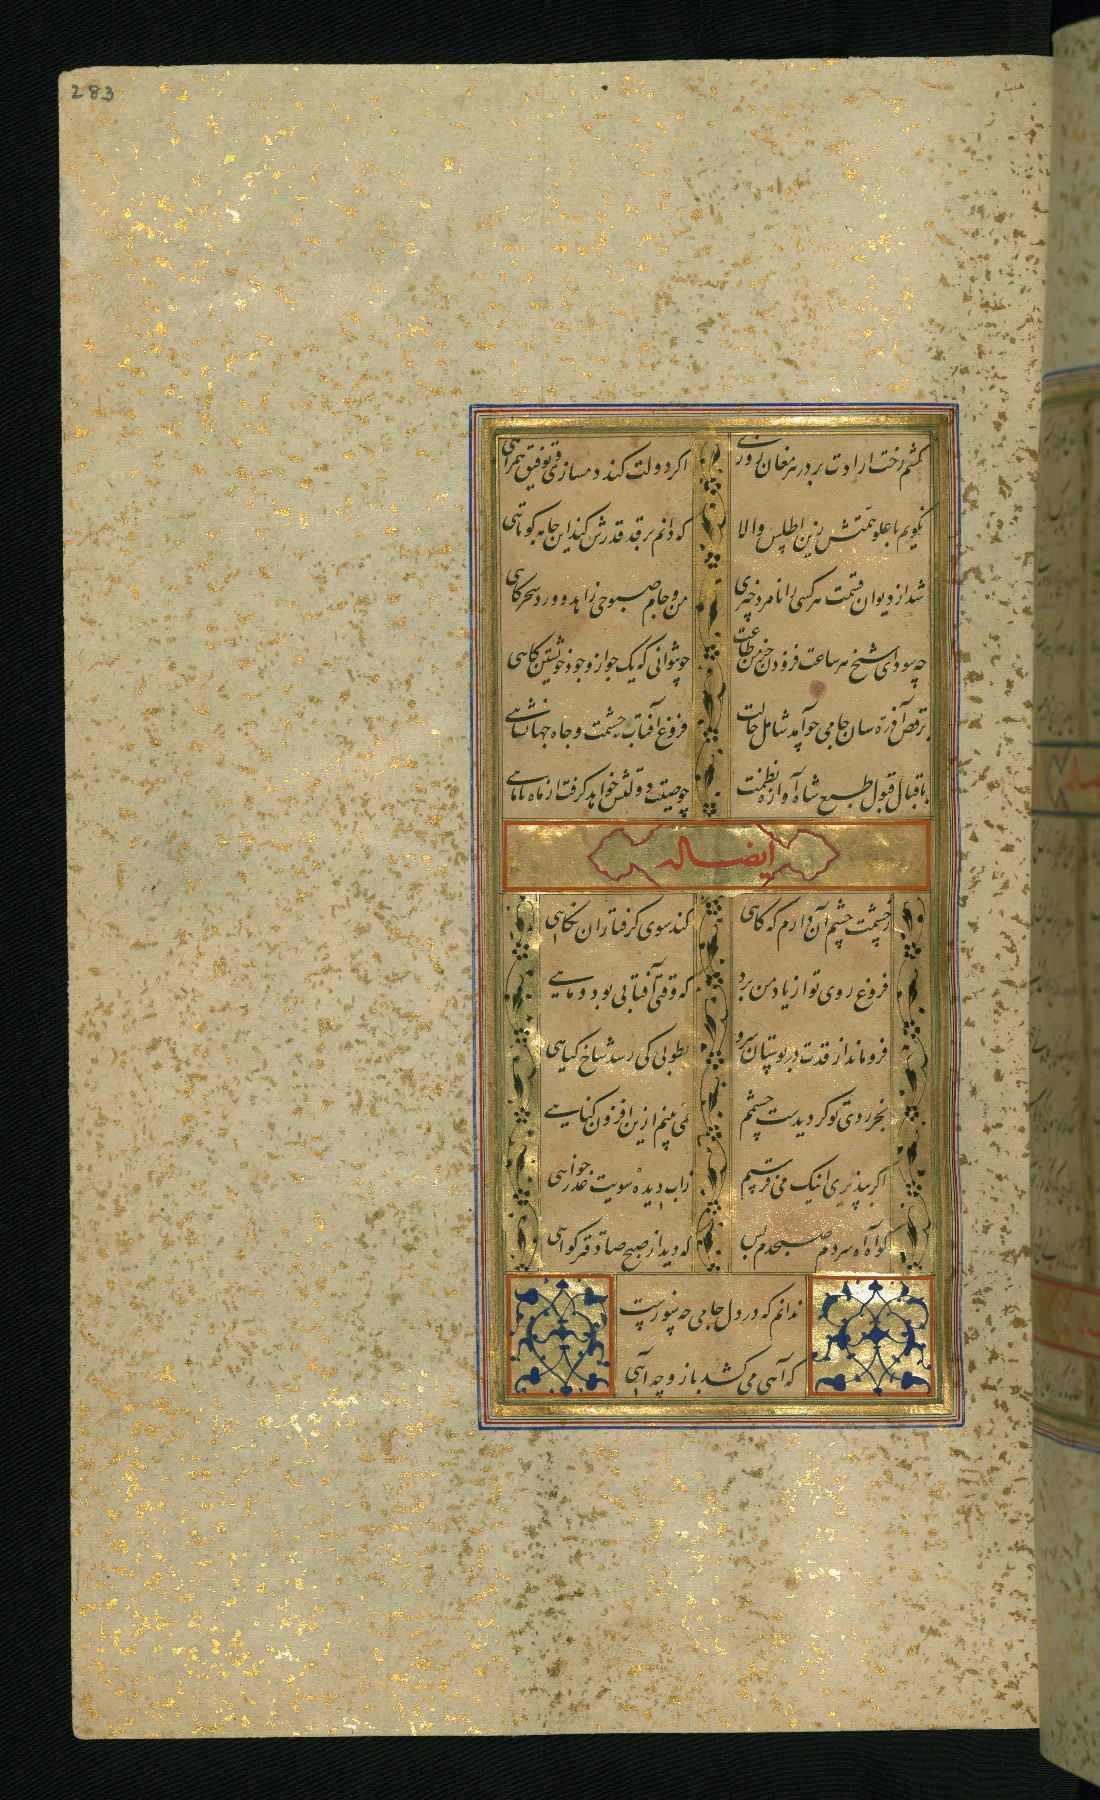 283
کشم رخت ارادت بر در پیر مغان روزی
اگر دولت کند دمسازی و توفیق همراهی
نگویم با علو همتش زین اطلس والا
که دانم بر قد قدرش کند این جامه کوتاهی
شد از دیوان قسمت هر کسی را نامزد چیزی
من و جام صبوحی زاهد و ورد سحرگاهی
چه سود ای شیخ هر ساعت فزودن خرمن طاعت
چو نتوانی که یک جو از وجود خویشتن کاهی
برقص آ ذره سان جامی چو آمد شامل حالت
فروغ آفتاب حشمت و جاه جهانشاهی
باقبال قبول طبع شاه آوازه نظمت
چو صیت دولتش خواهد گرفت از ماه تا ماهی
ایضا له
ز چشمت چشم آن دارم که گاهی
کند سوی گرفتاران نگاهی
فروغ روی تو از یاد من برد
که وقتی آفتابی بود و ماهی
فرو ماند از قدت در بوستان سرو
بطوبی کی رسد شاخ گیاهی
بجز روی تو گر دیدست چشمم
نمی بینم ازین افزون گناهی
اگر بپذیری اینک می فرستیم
ز آب دیده سویت عذرخواهی
گواه آه سردم صبحدم بس
که دید از صبح صادق تر گواهی
ندانم که در دل جامی چه سوزست
که آهی می کشد باز و چه آهی